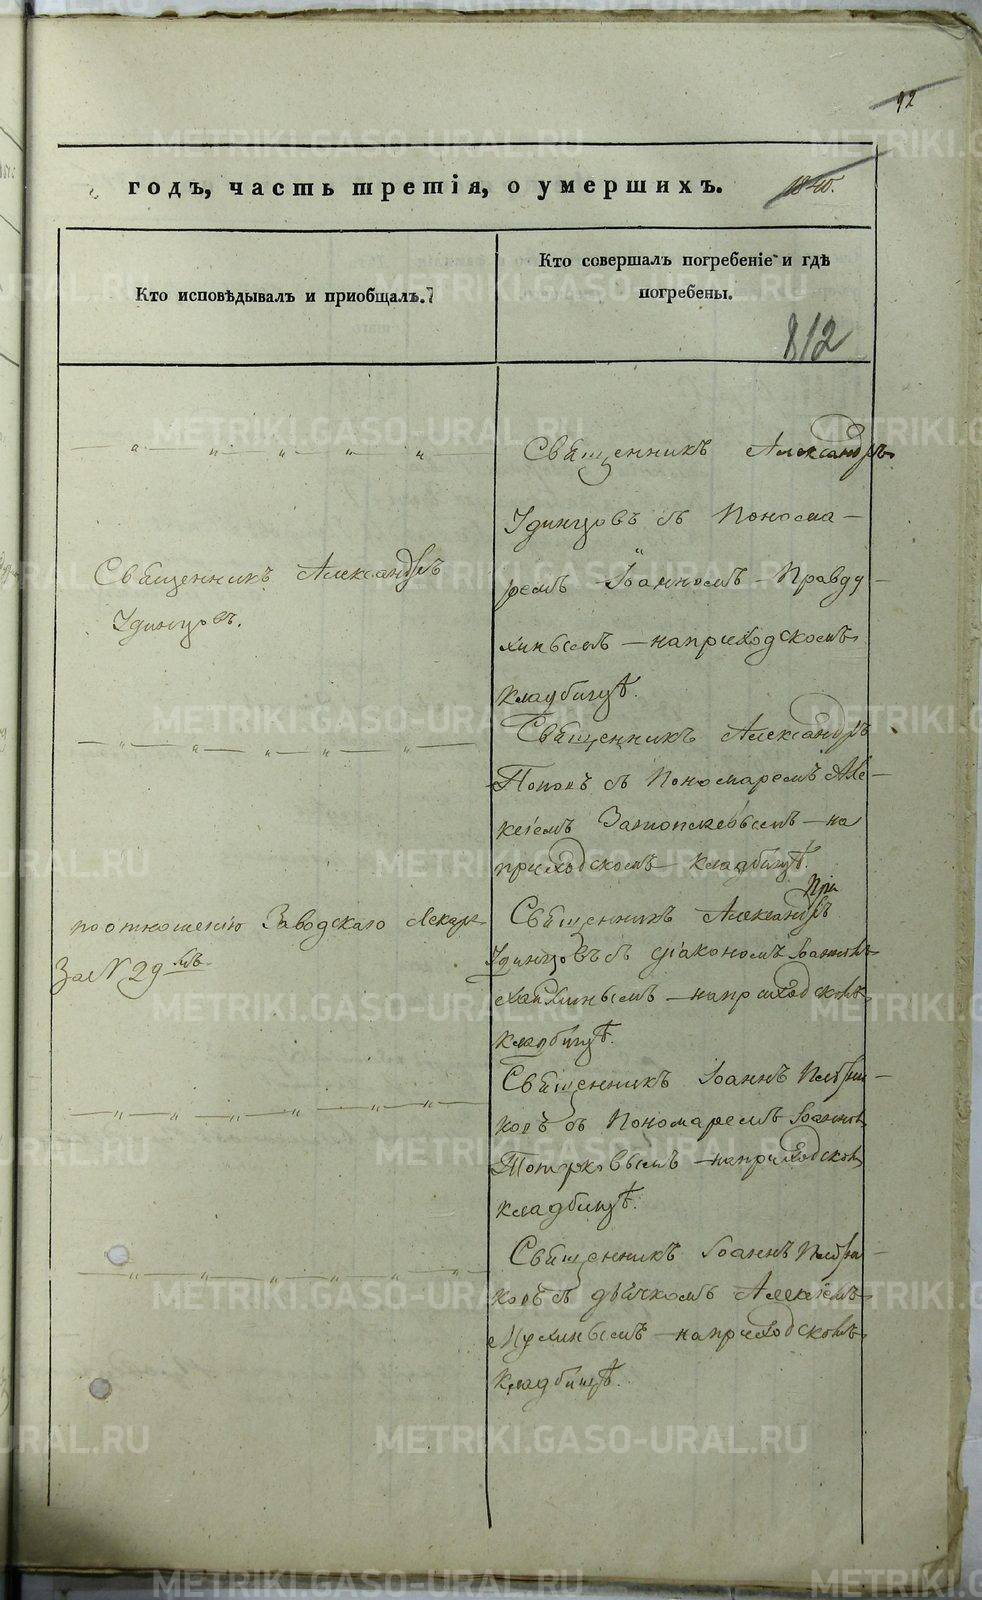 92
годъ, часть третія, о умершихъ.
1840.
Кто исповѣдывалъ и приобщалъ.
Кто совершалъ погребеніе и гдѣ
погребены.
812
Священникъ Александръ
Удинцовъ.
по отношенію Заводскаго Лекаря
За N 29мъ
Священникъ Александръ
Удинцовъ съ Понома-
ремъ Іоанномъ Правду-
хинымъ на приходскомъ
кладбищѣ.
Священникъ Александръ
Поповъ съ Пономаремъ Але-
кѣемъ на
приходскомъ кладбищѣ.
При
Священникъ Александръ
Удинцовъ съ діакономъ Іоанномъ
на приходскомъ
кладбищѣ.
Священникъ Іоаннъ
съ Пономаремъ Іоанномъ
на приходскомъ
кладбищѣ.
Священникъ Іоаннъ
съ дьячкомъ Алексѣемъ
Мухинымъ на приходскомъ
кладбищѣ.
METRIKI.GASO-URAL.RU